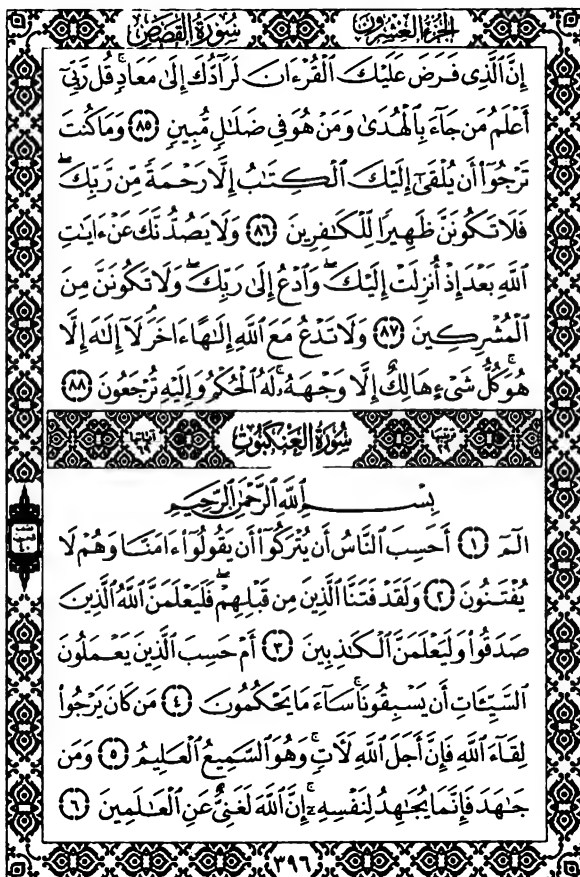 الجزء العشرون سورة القصص
إِنَّ ٱلَّذِى فَرَضَ عَلَيْكَ ٱلْقُرْءَانَ لَرَآدُّكَ إِلَىٰ مَعَادٍ ۚ قُل رَّبِّىٓ
أَعْلَمُ مَن جَآءَ بِٱلْهُدَىٰ وَمَنْ هُوَ فِى ضَلَـٰلٍ مُّبِينٍ ﴿٨٥﴾ وَمَا كُنتَ
تَرْجُوٓا۟ أَن يُلْقَىٰٓ إِلَيْكَ ٱلْكِتَـٰبُ إِلَّا رَحْمَةً مِّن رَّبِّكَ ۖ
فَلَا تَكُونَنَّ ظَهِيرًا لِّلْكَـٰفِرِينَ ﴿٨٦﴾ وَلَا يَصُدُّنَّكَ عَنْ ءَايَـٰتِ
ٱللَّهِ بَعْدَ إِذْ أُنزِلَتْ إِلَيْكَ ۖ وَٱدْعُ إِلَىٰ رَبِّكَ ۖ وَلَا تَكُونَنَّ مِنَ
ٱلْمُشْرِكِينَ ﴿٨٧﴾ وَلَا تَدْعُ مَعَ ٱللَّهِ إِلَـٰهًا ءَاخَرَ ۘ لَآ إِلَـٰهَ إِلَّا
هُوَ ۚ كُلُّ شَىْءٍ هَالِكٌ إِلَّا وَجْهَهُۥ ۚ لَهُ ٱلْحُكْمُ وَإِلَيْهِ تُرْجَعُونَ ﴿٨٨﴾
ترتيبها ٢٩ سورة العنكبوت آياتها ٦٩
بِسْمِ ٱللَّهِ ٱلرَّحْمَـٰنِ ٱلرَّحِيمِ
الٓمٓ ﴿١﴾ أَحَسِبَ ٱلنَّاسُ أَن يُتْرَكُوٓا۟ أَن يَقُولُوٓا۟ ءَامَنَّا وَهُمْ لَا
يُفْتَنُونَ ﴿٢﴾ وَلَقَدْ فَتَنَّا ٱلَّذِينَ مِن قَبْلِهِمْ ۖ فَلَيَعْلَمَنَّ ٱللَّهُ ٱلَّذِينَ
صَدَقُوا۟ وَلَيَعْلَمَنَّ ٱلْكَـٰذِبِينَ ﴿٣﴾ أَمْ حَسِبَ ٱلَّذِينَ يَعْمَلُونَ
ٱلسَّيِّـَٔاتِ أَن يَسْبِقُونَا ۚ سَآءَ مَا يَحْكُمُونَ ﴿٤﴾ مَن كَانَ يَرْجُوا۟
لِقَآءَ ٱللَّهِ فَإِنَّ أَجَلَ ٱللَّهِ لَـَٔاتٍ ۚ وَهُوَ ٱلسَّمِيعُ ٱلْعَلِيمُ ﴿٥﴾ وَمَن
جَـٰهَدَ فَإِنَّمَا يُجَـٰهِدُ لِنَفْسِهِۦٓ ۚ إِنَّ ٱللَّهَ لَغَنِىٌّ عَنِ ٱلْعَـٰلَمِينَ ﴿٦﴾
٣٩٦